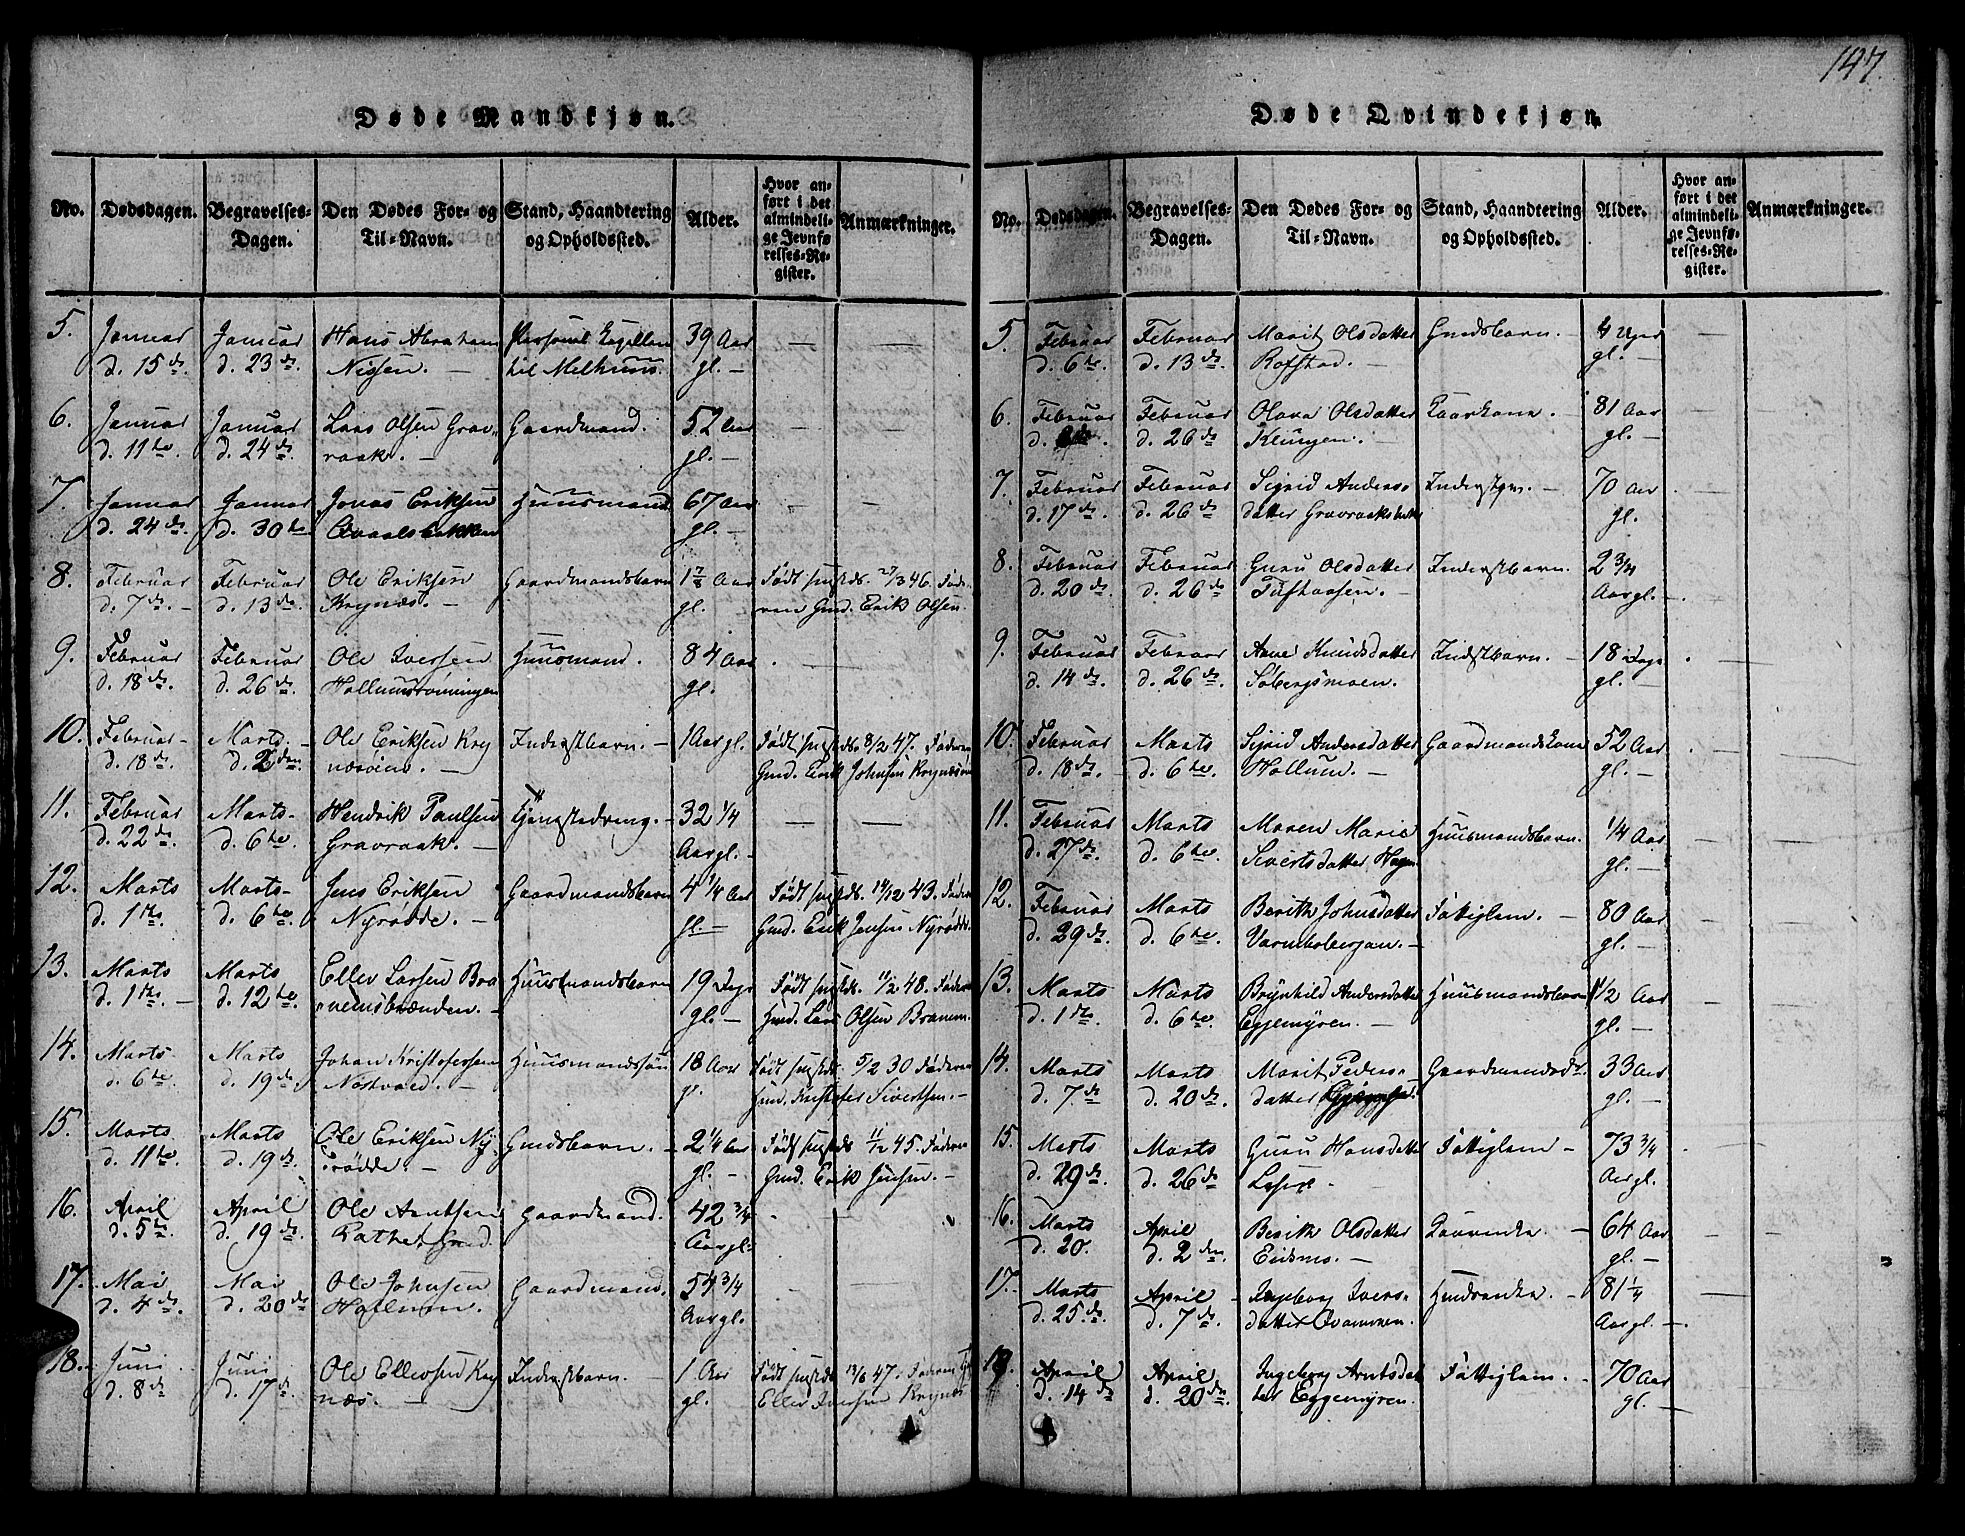 147.
Døde Mandkjøn.
No. Dødsdagen. Begravelses-Dagen. Den Dødes For- og Til-Navn. Stand, Haandtering og Opholdssted. Alder. Hvor anført i det almindelige Jevnførelses-Register. Anmærkninger.
5. Januar Januar Hans Abraham Personel Capellan 39 Aar — —
d. 15de. d. 23de. Nissen. — til Melhuus. gl. —
6. Januar Januar Lars Olsen Grav- Gaardmand. 52 Aar — —
d. 11te. d. 24de. raak. — gl. —
7. Januar Januar Jonas Eriksen Huusmand 67 Aar — —
d. 24de. d. 30te Qvaalsbakken gl. —
8. Februar Februar Ole Eriksen Gaardmandsbarn 1 7/8 Aar Født 27/3 46. Fade-
d. 7de. — d. 13de. Krynæs. — gl. ren Gmd. Erik Olsen
9. Februar Februar Ole Iversen Huusmand. 84 Aar — —
d. 18de. d. 26de. Hollumsrøningen gl.
10. Februar Marts Ole Eriksen Kry Inderstbarn. — 1 Aar gl. Født 8/2 47. Faderen
d. 18de. d. 2den. næsøien. — Gmd. Erik Johnsen Krynæsøien
11. Februar Marts Hendrik Paulsen Tjenestedreng. — 32 1/4 — —
d. 22de. d. 6te. Gravraak. — Aar gl. —
12. Marts Marts Jens Eriksen Gaardmandsbarn 4 1/4 Aar Født 14/12 43. Faderen
d. 1ste. d. 6te. Nyrødde. — gl. — Gmd. Erik Jensen Nyrødde.
13. Marts Marts Eller Larsen Bra Huusmandsbarn 19 Dage Født 11/2 48. Faderen
d. 1ste. — d. 12te. nemsbrænden. — gl. — Hmd. Lars Olsen Branem.
14. Marts Marts Johan Kristofersen Huusmandssøn 18 Aar Født 5/2 30 Faderen
d. 6te. d. 19de. Næstvold. — gl. Hmd. Kristofer Sivertsen. —
15. Marts Marts Ole Eriksen Ny- Gmdsbarn. — 2 1/4 Aar Født 11/12 45. Faderen
d. 11te. d. 19de. rødde. — gl. — Gmd. Erik Jensen. —
16. April April Ole Arntsen Gaardmand. 42 3/4 — —
d. 5te. d. 19de. Aar gl.
17. Mai Mai Ole Johnsen Gaardmand. 54 3/4 — —
d. 4de. d. 20de Hollum. Aar gl.
18. Juni Juni Ole Ellevsen Kry Inderstbarn. — 1 Aar Født 13/6 47. Faderen
d. 8de d. 17de. næs. — gl. Ellev Iversen Krynæs
Døde Qvindekjøn.
No. Dødsdagen. Begravelses-Dagen. Den Dødes For- og Til-Navn. Stand, Haandtering og Opholdssted. Alder. Hvor anført i det almindelige Jevnførelses-Register. Anmærkninger.
5. Februar Februar Marit Olsdatter Gmdsbarn. — 4 Uger —
d. 6te. d. 13de. Rofstad. — gl.
6. Februar Februar Olava Olsdatter Kaarkone. — 81 Aar —
d. d. 26de Klungen. — gl.
7. Februar Februar Sigrid Anders- 70 Aar
d. 17de. d. 26de datter Gravraaksbak gl.
8. Februar Februar Guru Olsdatter Inderstbarn. 2 3/4
d. 20de d. 26de Tufhaasen. — Aar gl. —
9. Februar Februar Anne Knudsdatter Indstbarn. — 18 Dage
d. 14de. d. 26de. Søbergsmoen. gl. —
10. Februar Marts Sigrid Andersdatter Gaardmandskone 52 Aar
d. 18de. d. 6te. Hollum. — gl.
11. Februar Marts Maren Marie Huusmandsbarn. 1/4 Aar —
d. 27de. d. 6te. Sivertsdatter Hagen gl.
12. Februar Marts Berith Johnsdatter Fattiglem. — 80 Aar
d. 29de. d. 6te. Varmbobergan. — gl. —
13. Marts Marts Brynhild Andersdatter Huusmandsbarn 1/2 Aar —
d. 1ste. d. 6te. Eggemyren. — gl. —
14. Marts Marts Marit Peders- Gaardmandsdtr. 33 Aar
d. 7de d. 20de. datter gl. —
15. Marts Marts Guru Hansdatter Fattiglem — 73 3/4
d. 29de. d. 26de Aar gl.
16. Marts April Berith Olsdatter 64 Aar —
d. 20. d. 2den. Eidsmo. — gl. —
17. Marts April Ingeborg Ivers- 81 1/4 —
d. 25de. d. 7de. datter Qvammen. Aar gl. —
18. April April Ingeborg Arntsdat Fattiglem. — 70 Aar
d. 14de d. 20de ter Eggemyren. gl. —